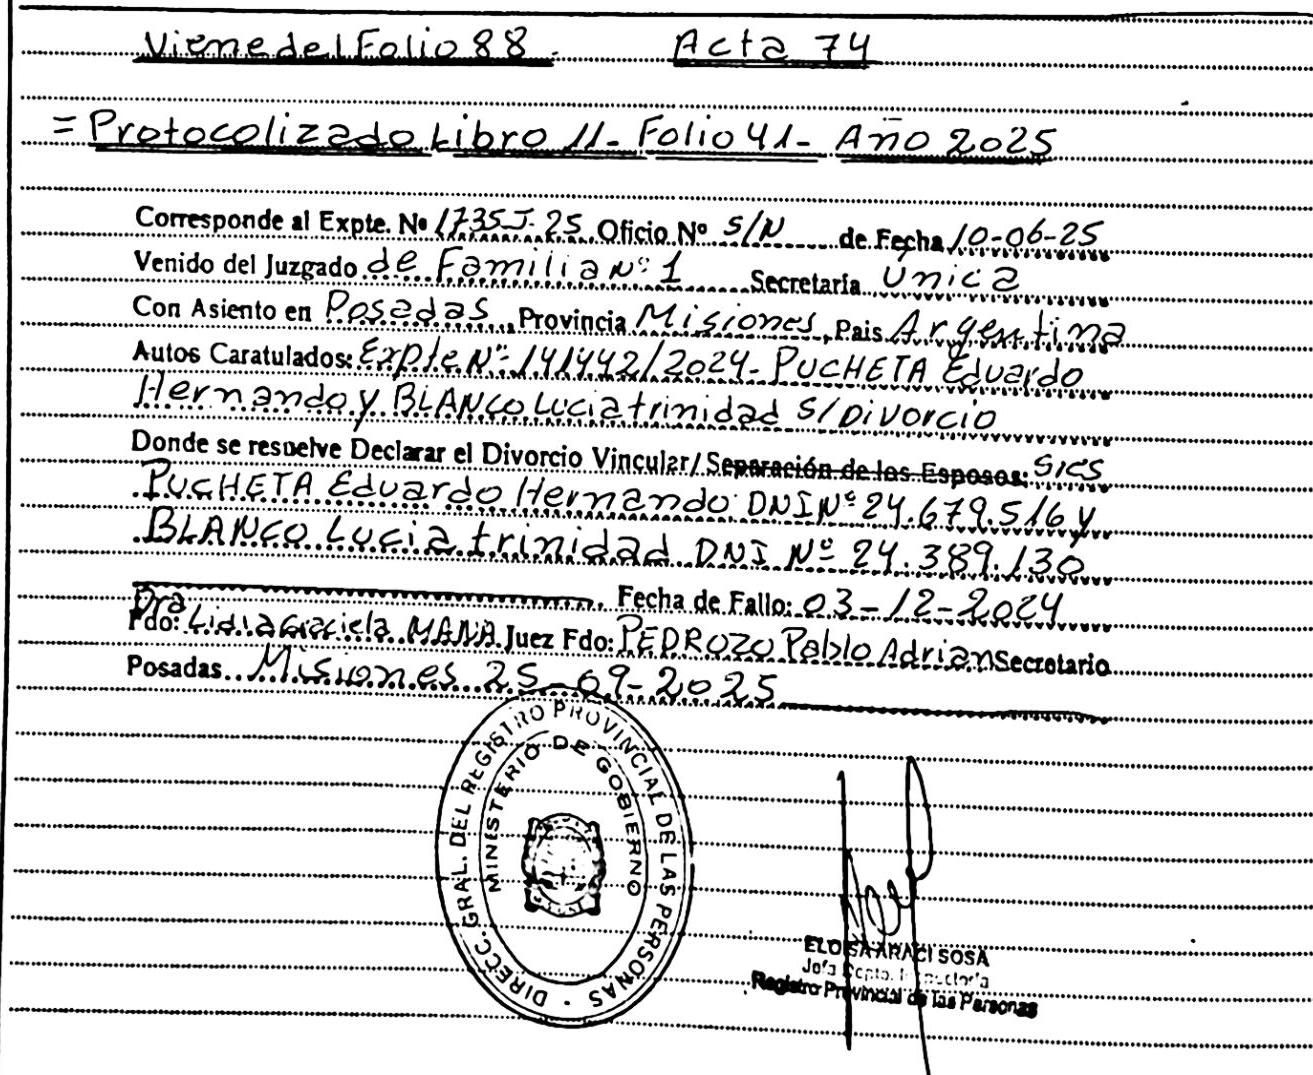 Viene del Folio 88. Acta 74
= Protocolizado Libro 11- Folio 41- Año 2025
Corresponde al Expte. Nº 1735J-25 Oficio Nº S/N de Fecha 10-06-25
Venido del Juzgado de Familia Nº 1 Secretaria Unica
Con Asiento en Posadas, Provincia Misiones, Pais Argentina
Autos Caratulados: Expte Nº 141442/2024- PUCHETA Eduardo
Hernando y BLANCO Lucia trinidad S/ Divorcio
Donde se resuelve Declarar el Divorcio Vincular/ Separación de los Esposos: Sres
PUCHETA Eduardo Hernando DNI Nº 24.679.516 y
BLANCO Lucia trinidad DNI Nº 24.389.130
Fecha de Fallo: 03-12-2024
Fdo: Dra Lidia Graciela MANA Juez Fdo: PEDROZO Pablo Adrian Secretario
Posadas Misiones 25-09-2025
DIRECC. GRAL. DEL REGISTRO PROVINCIAL DE LAS PERSONAS
MINISTERIO DE GOBIERNO
ELOISA ARACI SOSA
Jefa Dpto.
Registro Provincial de las Personas